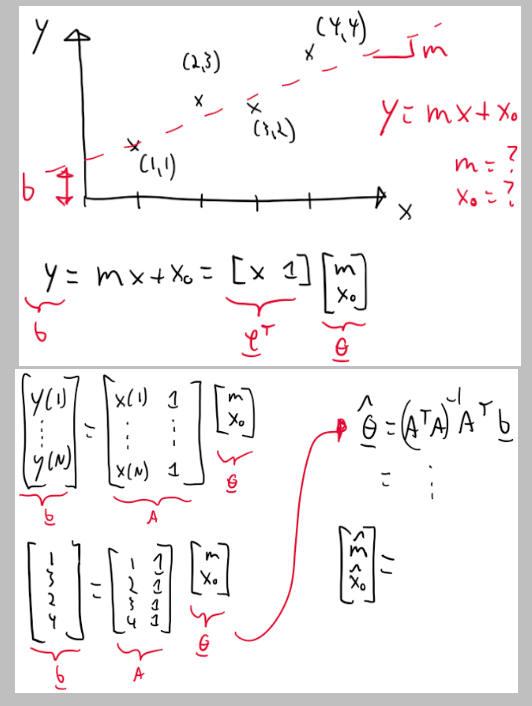 y
(4,4)
m
(2,3)
(3,2)
y = mx + x₀
(1,1)
m = ?
b
x₀ = ?
x
y = mx + x₀ = [x 1] [m
x₀]
b φᵀ θ
[y(1) ⋮ y(N)] = [x(1) 1 ⋮ ⋮ x(N) 1] [m x₀]
b A θ
θ̂ = (AᵀA)⁻¹Aᵀ b
= ⋮
[1 3 2 4] = [1 1 2 1 3 1 4 1] [m x₀]
b A θ
[m̂ x̂₀] =